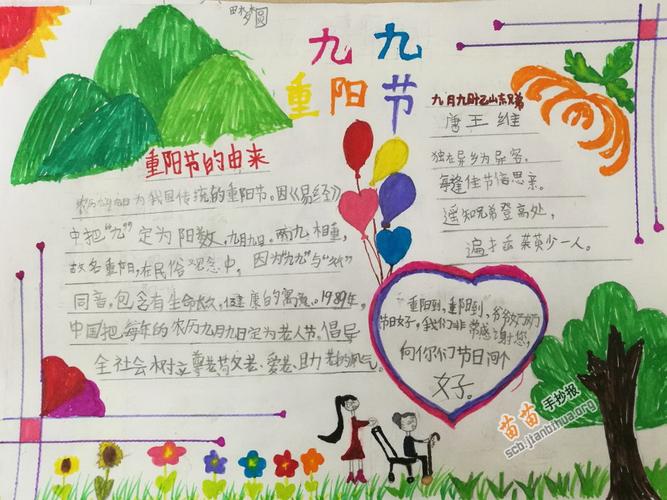 田梦圆
九九
重阳节
重阳节的由来
农历九月九日为我国传统的重阳节。因《易经》
中把“九”定为阳数,九月九日,两九相重,
故名重阳,在民俗观念中,因为“九九”与“久久”
同音,包含有生命长久,健康的寓意。1989年,
中国把每年的农历九月九日定为老人节,倡导
全社会树立尊老敬老、爱老、助老的风气。
九月九日忆山东兄弟
唐王维
独在异乡为异客,
每逢佳节倍思亲。
遥知兄弟登高处,
遍插茱萸少一人。
重阳到,重阳到,爷爷奶奶
节日好,我们非常感谢您,
向你们节日问个
好。
苗苗手抄报
scb.jianbihua.org